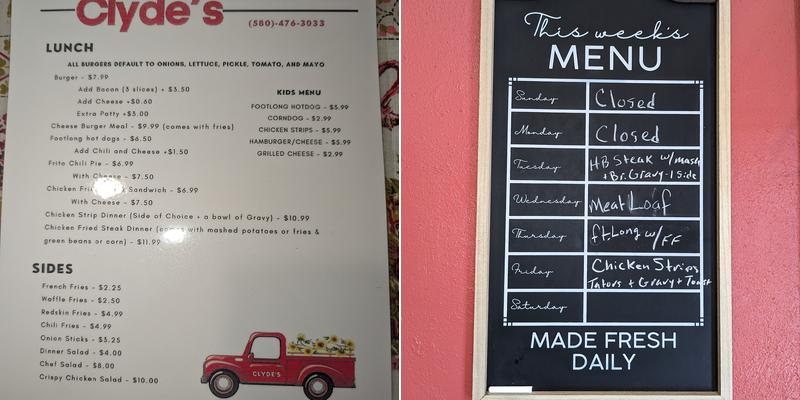 Clyde's
(580)-476-3033
LUNCH
ALL BURGERS DEFAULT TO ONIONS, LETTUCE, PICKLE, TOMATO, AND MAYO
Burger - $7.99
Add Bacon (3 slices) + $3.50
Add Cheese +$0.60
Extra Patty +$3.00
Cheese Burger Meal - $9.99 (comes with fries)
Footlong hot dogs - $6.50
Add Chili and Cheese +$1.50
Frito Chili Pie - $6.99
With Cheese - $7.50
Chicken Fried Sandwich - $6.99
With Cheese - $7.50
Chicken Strip Dinner (Side of Choice + a bowl of Gravy) - $10.99
Chicken Fried Steak Dinner (comes with mashed potatoes or fries &
green beans or corn) - $11.99
KIDS MENU
FOOTLONG HOTDOG - $5.99
CORNDOG - $2.99
CHICKEN STRIPS - $5.99
HAMBURGER/CHEESE - $5.99
GRILLED CHEESE - $2.99
SIDES
French Fries - $2.25
Waffle Fries - $2.50
Redskin Fries - $4.99
Chili Fries - $4.99
Onion Sticks - $3.25
Dinner Salad - $4.00
Chef Salad - $8.00
Crispy Chicken Salad - $10.00
CLYDE'S
This week's
MENU
Sunday Closed
Monday Closed
Tuesday HB Steak w/mash
+Br. Gravy-1 Side
Wednesday Meat Loaf
Thursday ft. Long w/FF
Friday Chicken Strips
Tators + Gravy + Toast
Saturday
MADE FRESH
DAILY